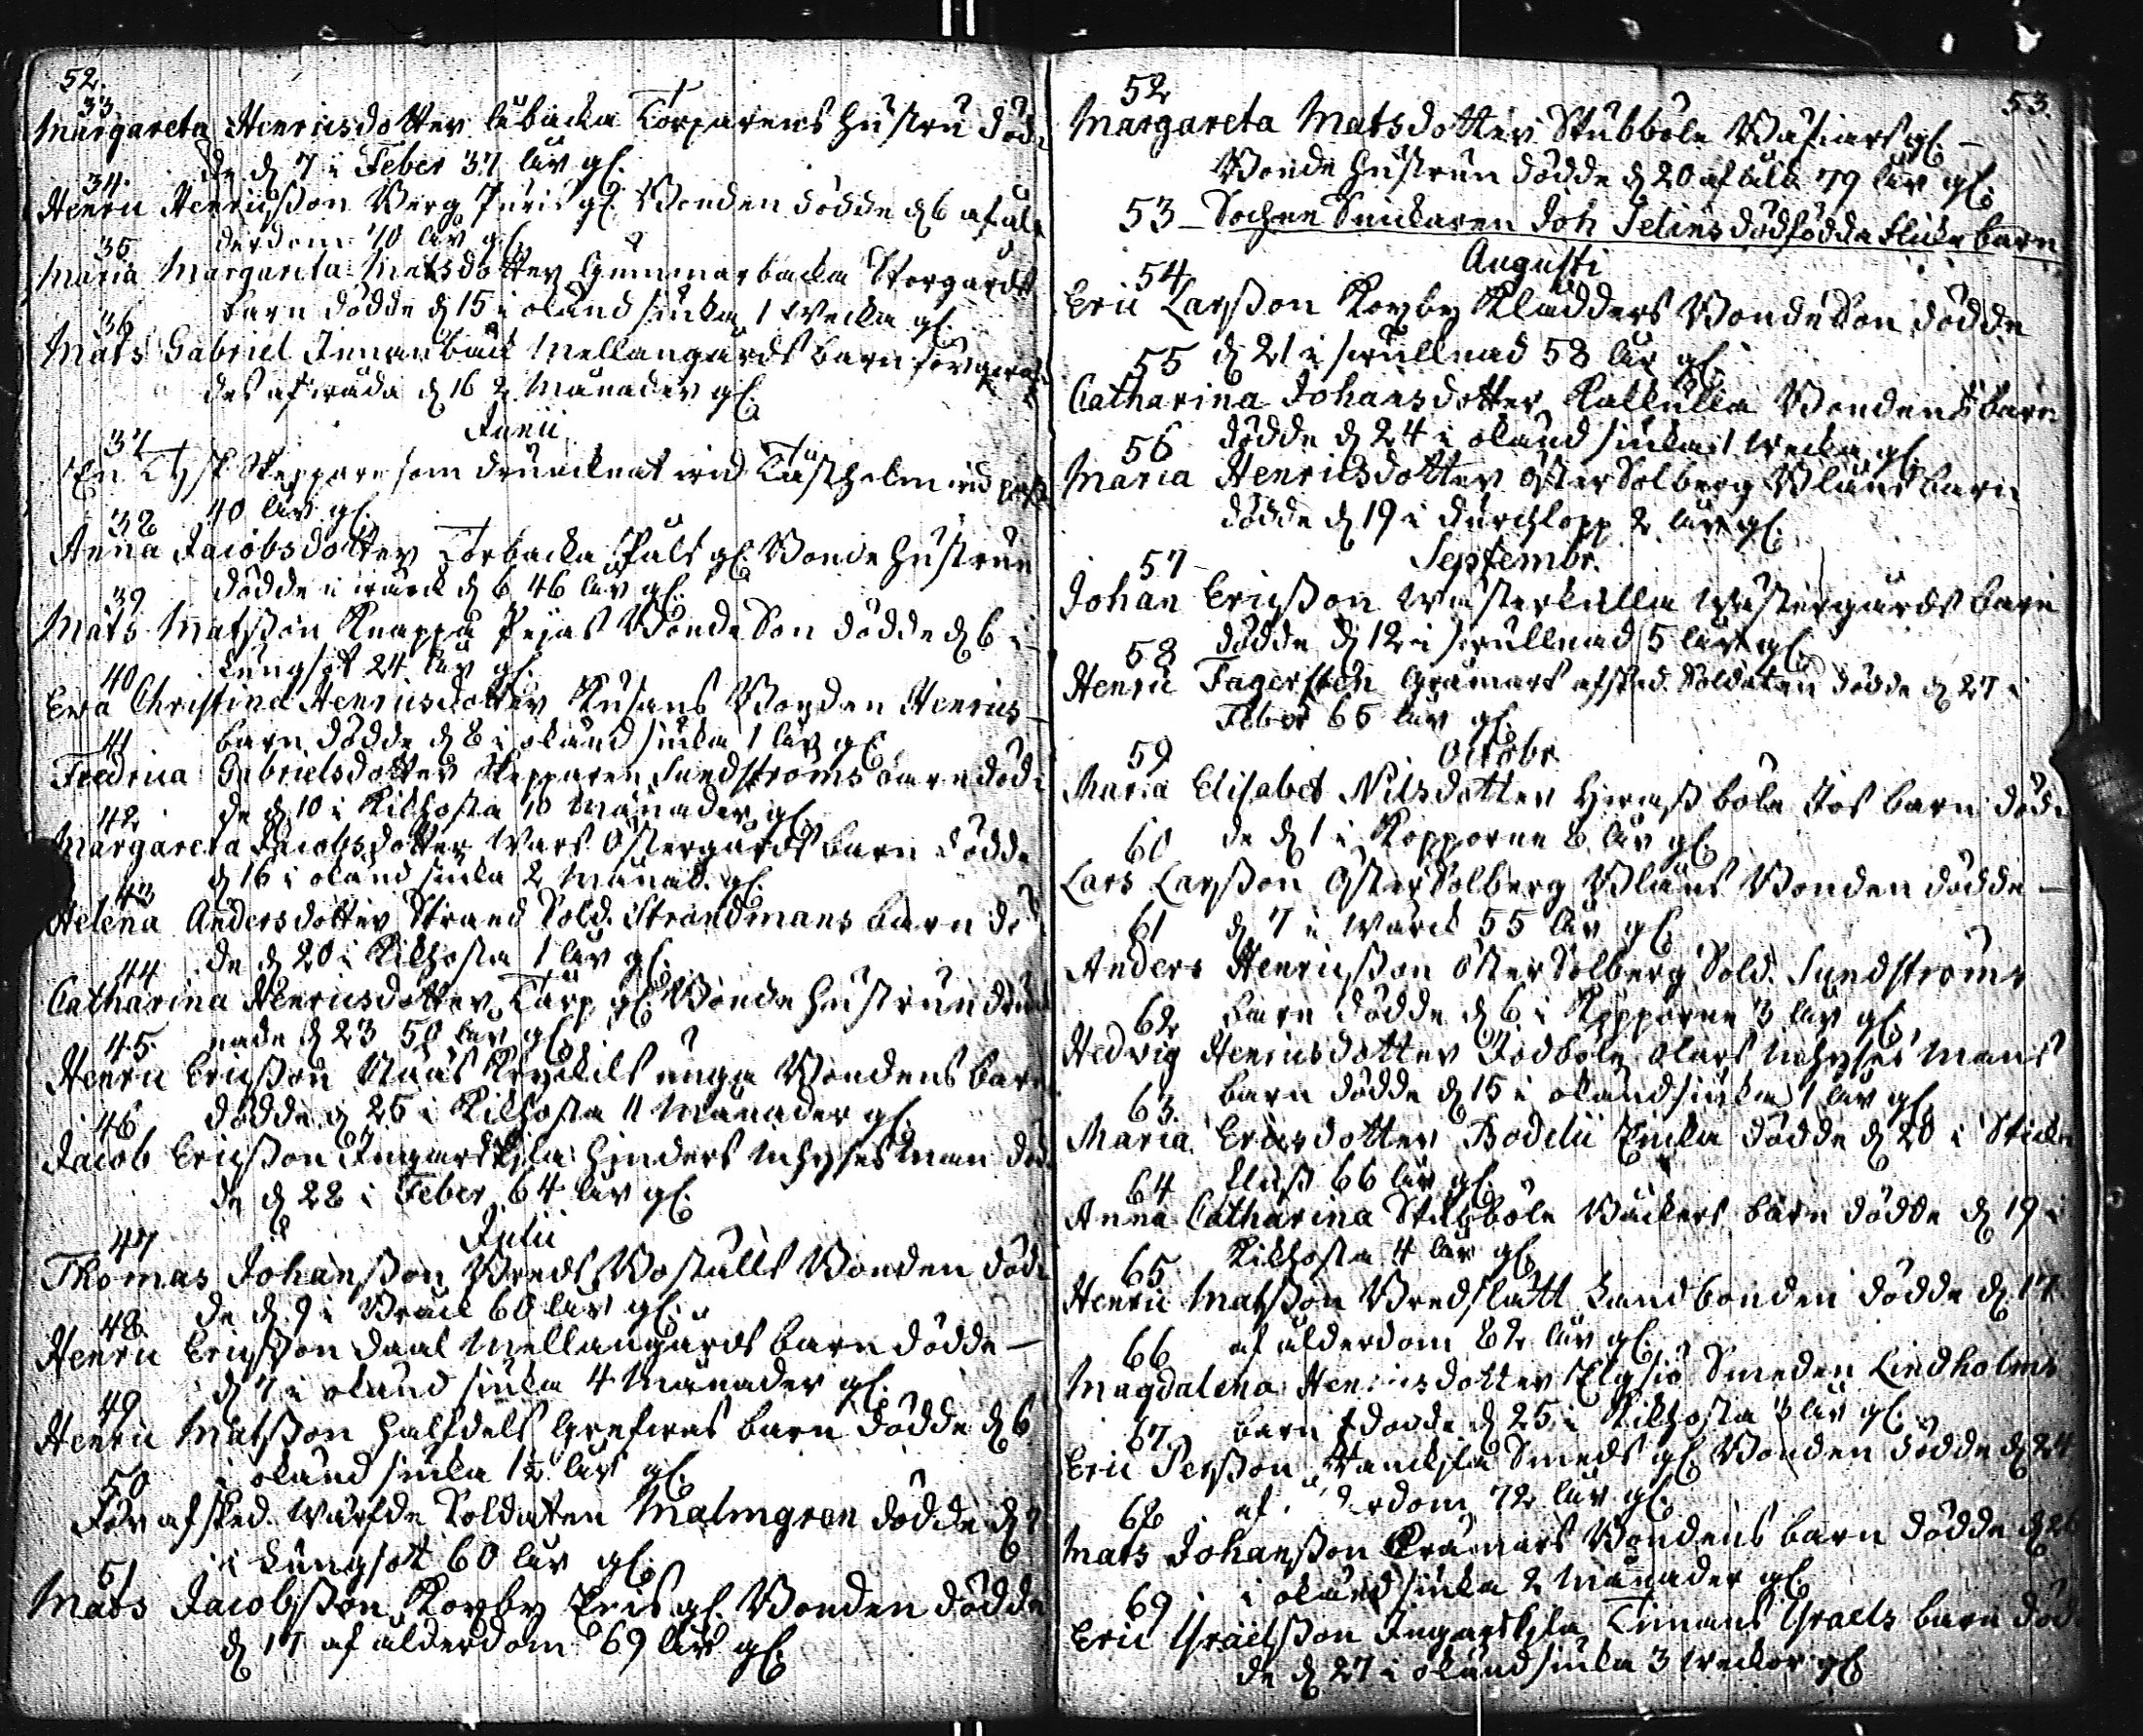 52.
33
Margareta Henricsdotter Lübacka Torparens hustru död-
de d 7 i Feber 37 åhr gl.
34.
Henric Henricsson Berg Juris gl. Bonden dödde d 6 af ål-
derdom 70 åhr gl.
35
Maria Margareta Matsdotter Gummarbacka Storgårds
barn dödde d 15 i okänd siuka 1 Wecka gl.
36
Mats Gabriel Innanbäck Mellangårds barn
des af wåda d 16 2 Månader gl.
Junii
37
En Tysk Skeppare som drunknat wid Täktholm wid pass
40 åhr gl.
38
Anna Jacobsdotter Torbacka Påls gl. Bonde hustrun
dödde i wärck d 6 46 åhr gl.
39
Mats Matsson Knappa Pejas Bonde Son dödde d 6 i
Lungsot 24 åhr gl.
40
Ewa Christina Henricsdotter Kusans Bonden Henrics
barn dödde d 8 i okänd siuka 1 åhr gl.
41
Fredrica Gabrielsdotter Skepparen Sundströms barn död-
de d 10 i Kikhosta 10 Månader gl.
42
Margareta Jacobsdotter Wars Östergårds barn dödde
d 16 i okänd siuka 2 Månad. gl.
43
Helena Andersdotter Strand Sold. Strandmans barn dö
de d 20 i Kikhosta 1 åhr gl.
44
Catharina Henricsdotter Tårp gl. Bonde hustrun
nade d 23 50 åhr gl.
45
Henric Ericsson Nääs unga Bondens barn
dödde d 25 i Kikhosta 11 Månader gl.
46
Jacob Ericsson Ingarskila Hinders Inhyses Man död
de d 28 i Feber 64 åhr gl.
Julii
47
Thomas Johansson Breds Boställs Bonden död-
de d 9 i Bråck 60 åhr gl.
48
Henric Ericsson Daal Mellangårds barn dödde
d 7 i okänd siuka 4 Månader gl.
49
Henric Matsson Halfdels Grefwes barn dödde d 6
i okänd siuka 1½ åhr gl.
50
Förafsked. Wärfde Soldaten Malmgren dödde d
i Lungsot 60 åhr gl.
51
Mats Jacobsson Korby Eris gl. Bonden dödde
d 17 af ålderdom 69 åhr gl.
53.
52
Margareta Matsdotter Stubböle Wäfwars gl.
Bonde hustrun dödde d 20 af ålder 79 åhr gl.
53 Sochne Snickaren Joh Selins dödfödda flicke barn
Augusti
54
Eric Larsson Korby Klädders Bonde Son dödde
d 21 i swullnad 58 åhr gl.
55
Catharina Johansdotter Kallkulla Bondens barn
dödde d 24 i okänd siuka 1 Wecka gl.
56
Maria Henricsdotter Öster Solberg Blåns barn
dödde d 19 i Durchlopp 2 åhr gl.
Septembr.
57
Johan Ericsson Westerkulla Westergårds barn
dödde d 12 i swullnad 5 åhr gl.
58
Henric Fagersten Gramars afsked. Soldaten dödde d 27 i
Feber 65 åhr gl.
Octobr
59
Maria Elisabet Nilsdotter Hirmsböle Jos barn död-
de d 1 i Kopporne 8 åhr gl.
60
Lars Larsson Öster Solberg Blåns Bonden dödde
d 7 i Wärck 55 åhr gl.
61
Anders Henricsson Öster Solberg Sold. Sundströms
barn dödde d 6 i Kopporne 3 åhr gl.
62
Hedvig Henricsdotter Jodböle Olars Inhyses Mans
barn dödde d 15 i okänd siuka 1 åhr gl.
63.
Maria Ericsdotter Bodelii Enka dödde d 20 i Stick
fluss 66 åhr gl.
64
Anna Catharina Stubböle Bäckers barn dödde d 19 i
Kikhosta 4 åhr gl.
65
Henric Matsson Bredslätt Landbonden dödde d 17
af ålderdom 82 åhr gl.
66
Magdalena Henricsdotter Elgsiö Smeden Lindholms
barn dödde d 25 i Kikhosta 3 åhr gl.
67
Eric Persson Smeds gl. Bonden dödde d 24
af rdom 72 åhr gl.
68
Mats Johansson Kramars Bondens barn dödde d 26
i okänd siuka 2 Månader gl.
69
Eric Israelsson Ingarskila Timans Israels barn död
de d 27 i okänd siuka 3 Weckor gl.